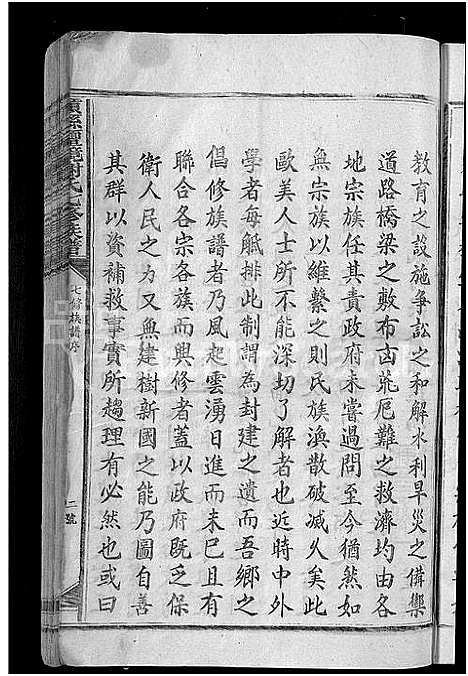 教育之設施爭訟之和解水利旱災之備禦
道路橋梁之敷布凶荒厄難之救濟均由各
地宗族任其責政府未嘗過問至今猶然如
無宗族以維繫之則民族渙散破滅久矣此
歐美人士所不能深切了解者也近時中外
學者每觝排此制謂為封建之遺而吾鄉之
倡修族譜者乃風起雲湧日進而未已且有
聯合各宗各族而興修者蓋以政府既乏保
衛人民之力又無建樹新國之能乃圖自善
其群以資補救事實所趨理有必然也或曰
氏七修族譜
七修族譜序
二號